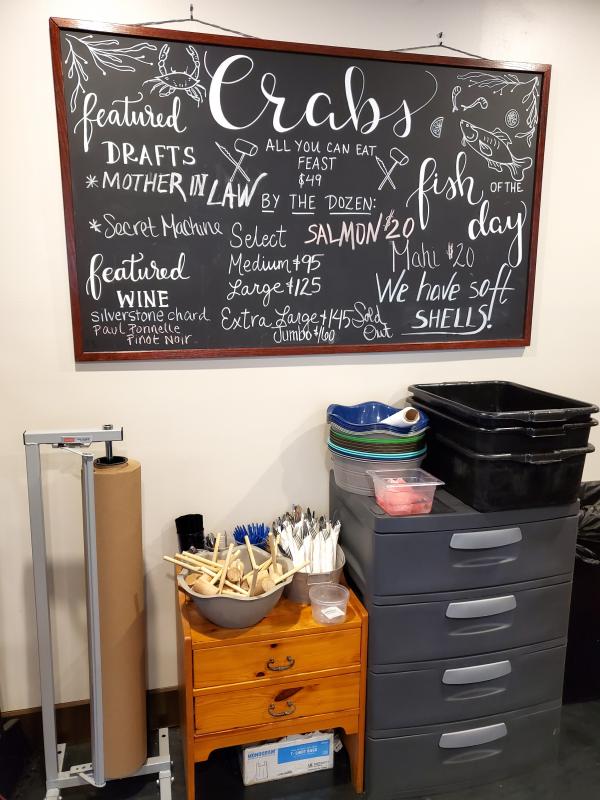 Crabs
ALL YOU CAN EAT
FEAST
$49
BY THE DOZEN:
Select
Medium $95
Large $125
Extra Large $145 Sold
Jumbo $160 Out
featured
DRAFTS
*MOTHER IN LAW
*Secret Machine
featured
WINE
Silverstone chard
Paul Ponnelle
Pinot Noir
fish
OF THE
day
SALMON $20
Mahi $20
We have soft
SHELLS!
MONOGRAM